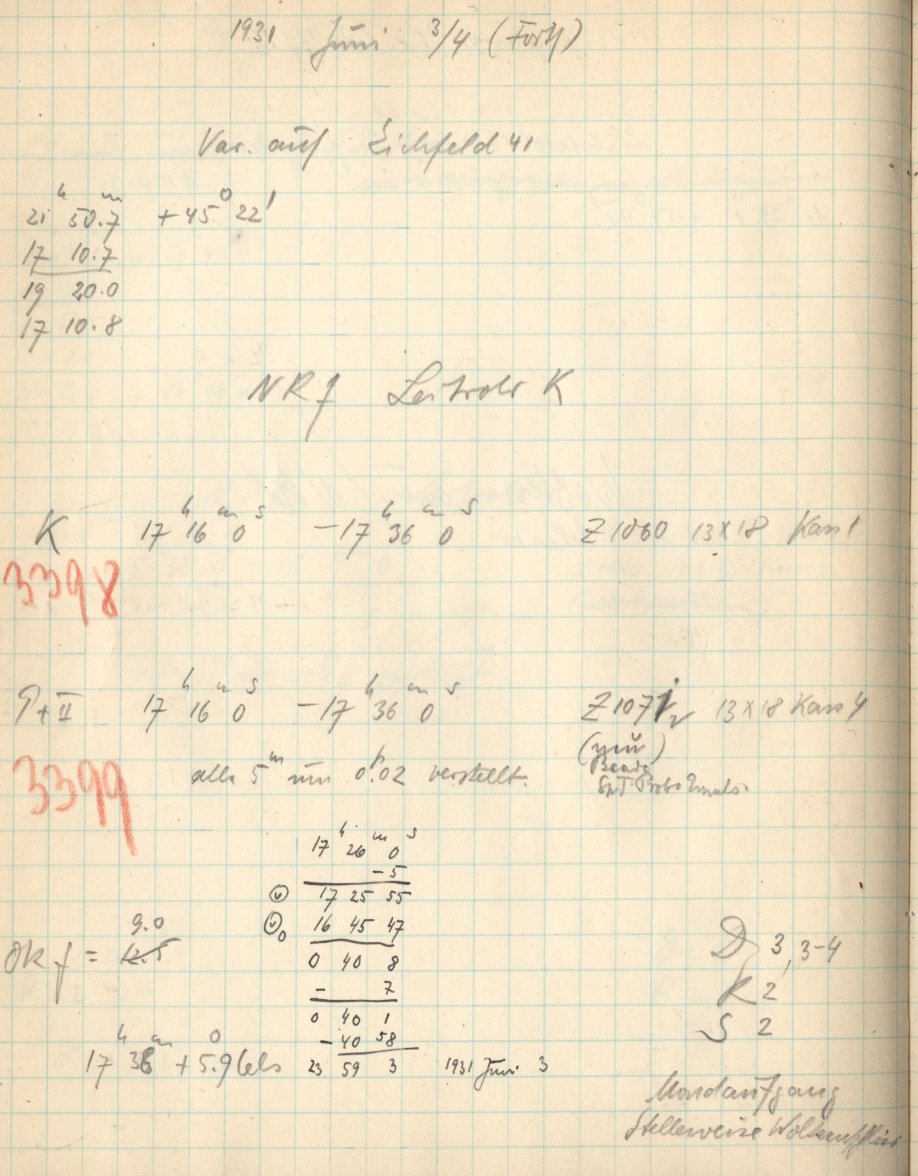 1931 Juni 3/4 (Forts)
Var. auf Eichfeld 41
21ʰ 50.7ᵐ +45° 22'
17 10.7
19 20.0
17 10.8
NR f Leitrohr K
K 17ʰ 16ᵐ 0ˢ – 17ʰ 36ᵐ 0ˢ Z 1060 13x18 Kass 1
3398
P+II 17ʰ 16ᵐ 0ˢ – 17ʰ 36ᵐ 0ˢ Z 1071 13x18 Kass 4
3399
alle 5ᵐ um 0.02 verstellt.
17ʰ 26ᵐ 0ˢ
- 5
17 25 55
16 45 47
0 40 8
- 7
0 40 1
- 40 58
23 59 3 1931 Juni 3
9.0
Ok f = 12.5
17ʰ 36ᵐ +5.9°
D 3, 3-4
K 2
S 2
Mondaufgang
Stellenweise